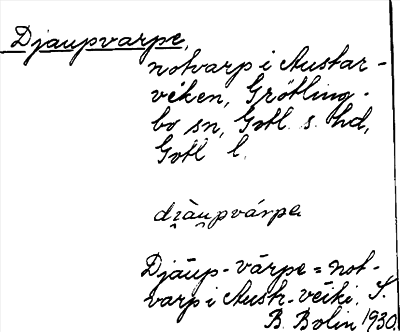 Djaupvarpe,
notvarp i Austar-
viken, Grötling-
bo sn, Gotl. s. hd,
Gotl l.
di̯àu̯pvárpe
Djāup-vārpe = not-
varp i Austr-veiki. S.
B. Bolin 1930